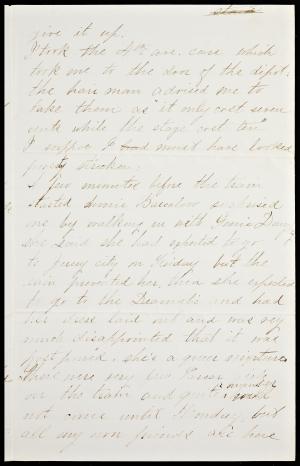 give it up.
I took the 4th ave. cars which
took me to the door of the depot;
the han man advised me to
take them as "it only cost seven
cents while the stage cost ten"
I suppose I had must have looked
poverty stricken.
A few minutes before the train
started Annie Barstow surprised
me by walking in with Genie
she said she had expected to go
to Jersey city on Friday but the
rain prevented her, then she expected
to go to the Dramatic and had
her dress laid out and was very
much disappointed that it was
postponed. she's a queer
There were very few
on the train and quite a number
not come until Monday, but
all my own friends are here